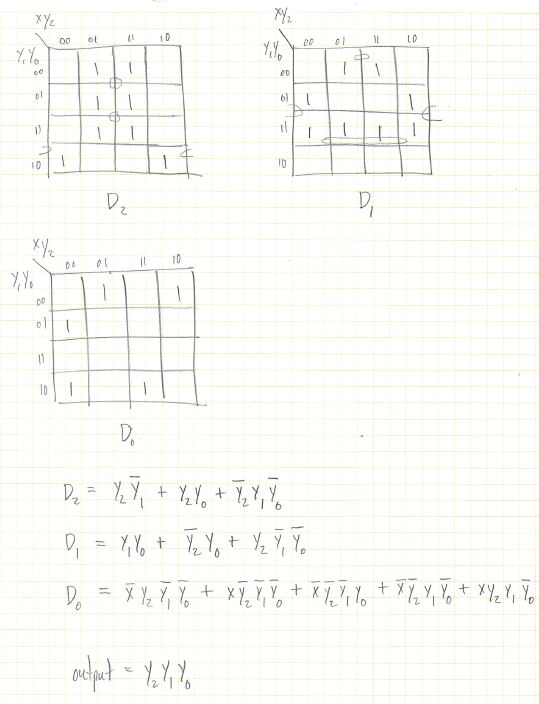 XY₂ XY₂
00 01 11 10 00 01 11 10
Y₁Y₀ Y₁Y₀
00 1 1 00 1 1
01 1 1 01 1 1
11 1 1 11 1 1 1 1
10 1 1 10
D₂ D₁
XY₂
00 01 11 10
Y₁Y₀
00 1 1
01 1
11
10 1 1
D₀
D₂ = Y₂Y̅₁ + Y₂Y₀ + Y̅₂Y₁Y̅₀
D₁ = Y₁Y₀ + Y̅₂Y₀ + Y₂Y̅₁Y̅₀
D₀ = X̅Y₂Y̅₁Y̅₀ + XY̅₂Y̅₁Y̅₀ + X̅Y̅₂Y̅₁Y₀ + X̅Y̅₂Y₁Y̅₀ + XY₂Y₁Y̅₀
output = Y₂Y₁Y₀